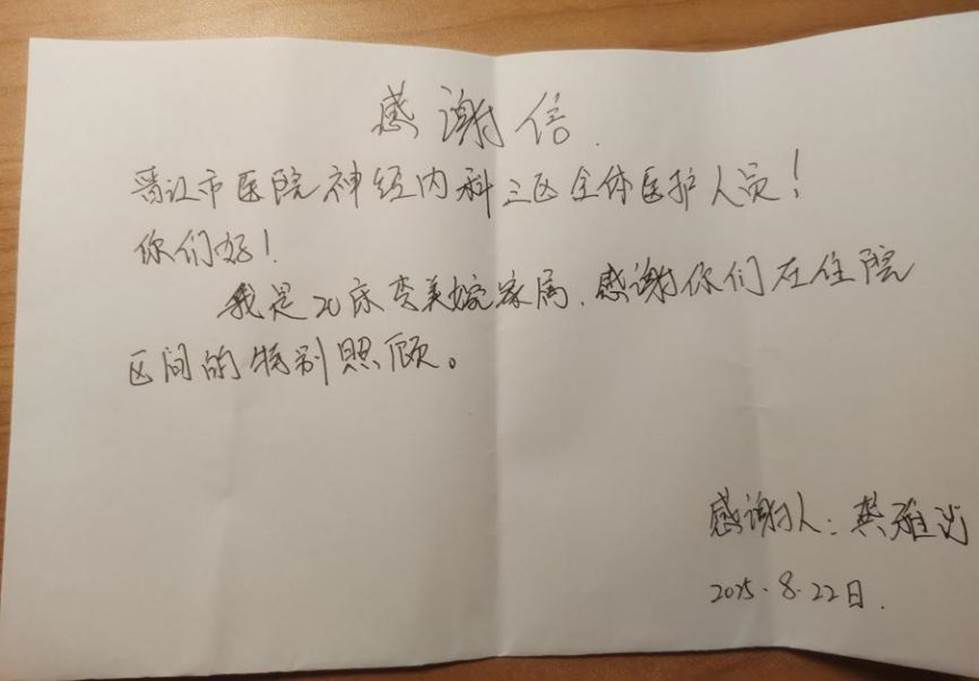 感谢信.
晋江市医院神经内科三区全体医护人员!
你们好!
我是20床李美嫁家属.感谢你们在住院
区间的特别照顾。
感谢人:
2025.8.22日.